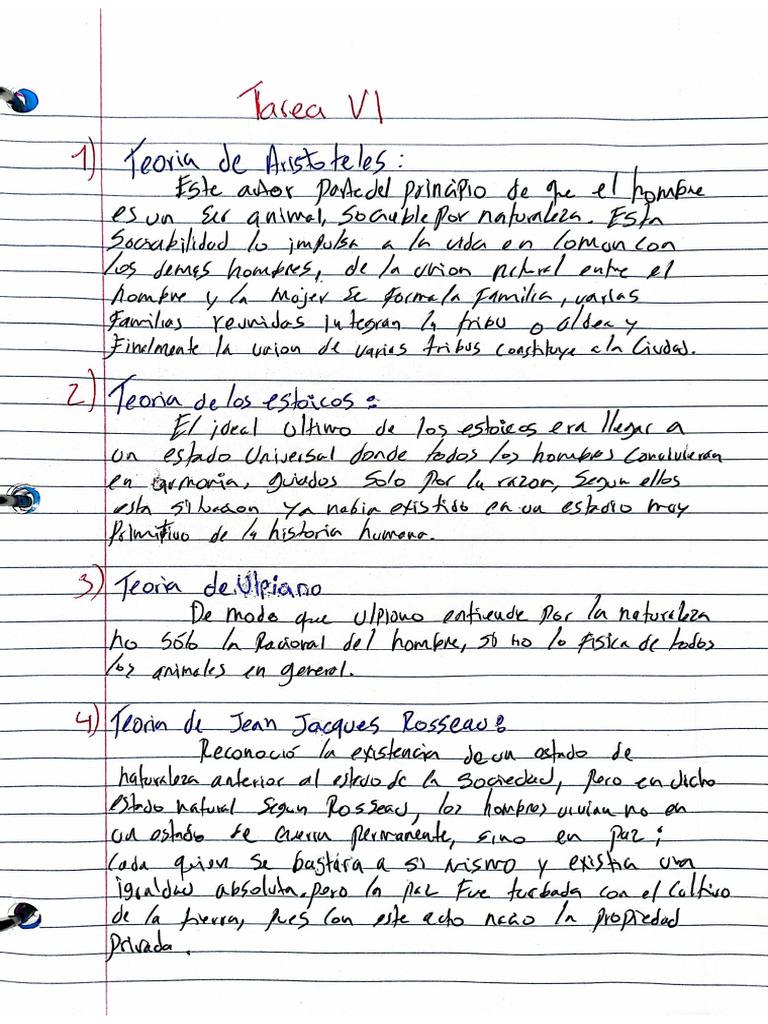 Tarea VI
1) Teoria de Aristoteles:
Este autor parte del principio de que el hombre
es un ser animal, Sociable por naturaleza. Esta
Sociabilidad lo impulsa a la vida en comun con
los demas hombres, de la union natural entre el
hombre y la Mujer se forma la Familia, varias
familias reunidas integran la tribu o aldea y
Finalmente la union de varias tribus constituye a la Ciudad.
2) Teoria de los estoicos:
El ideal ultimo de los estoicos era llegar a
un estado Universal donde todos los hombres convivieran
en armonia, guiados solo por la razon, Segun ellos
esta situacion ya habia existido en un estadio muy
Primitivo de la historia humana.
3) Teoria de Ulpiano
De modo que Ulpiano entiende por la naturaleza
no sólo la Racional del hombre, si no lo fisica de todos
los animales en general.
4) Teoria de Jean Jacques Rosseau:
Reconoció la existencia de un estado de
naturaleza anterior al estado de la Sociedad, pero en dicho
estado natural Segun Rosseau, los hombres vivian no en
un estado de Guerra permanente, sino en paz;
Cada quien se bastara a si mismo y existia una
igualdad absoluta, pero la paz Fue turbada con el Cultivo
de la tierra, pues con este acto nacio la propiedad
Privada.